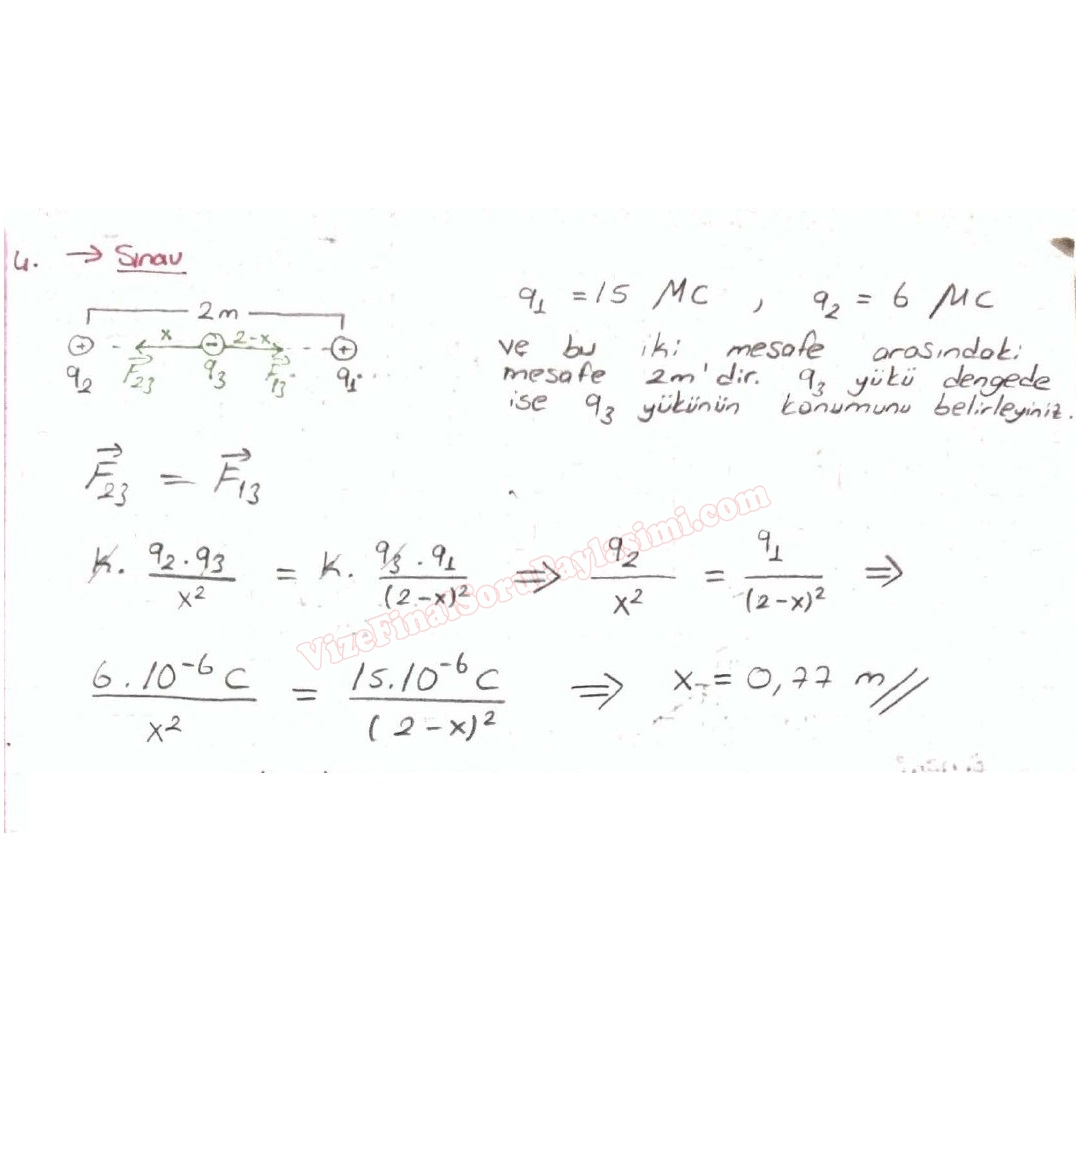 4. → Sınav
2m
x 2-x
q2 F23 q3 F13 q1
q1 = 15 MC , q2 = 6 MC
ve bu iki mesafe arasındaki
mesafe 2m'dir. q3 yükü dengede
ise q3 yükünün konumunu belirleyiniz.
F23 = F13
K. q2.q3 / x² = K. q3.q1 / (2-x)² ⇒ q2 / x² = q1 / (2-x)² ⇒
6.10⁻⁶ C / x² = 15.10⁻⁶ C / (2-x)² ⇒ x = 0,77 m//
VizeFinalSoruPaylasimi.com